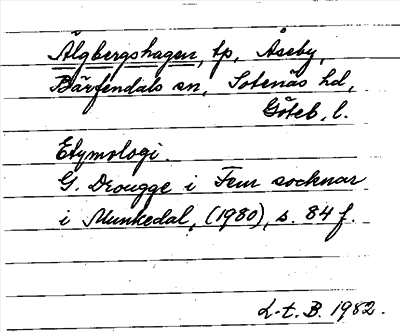 Älgbergshagen, tp, Åseby,
Bärfendals sn, Sotenäs hd,
Göteb. l.
Etymologi.
G. Drougge i Fem socknar
i Munkedal, (1980), s. 84 f.
L-t. B. 1982.